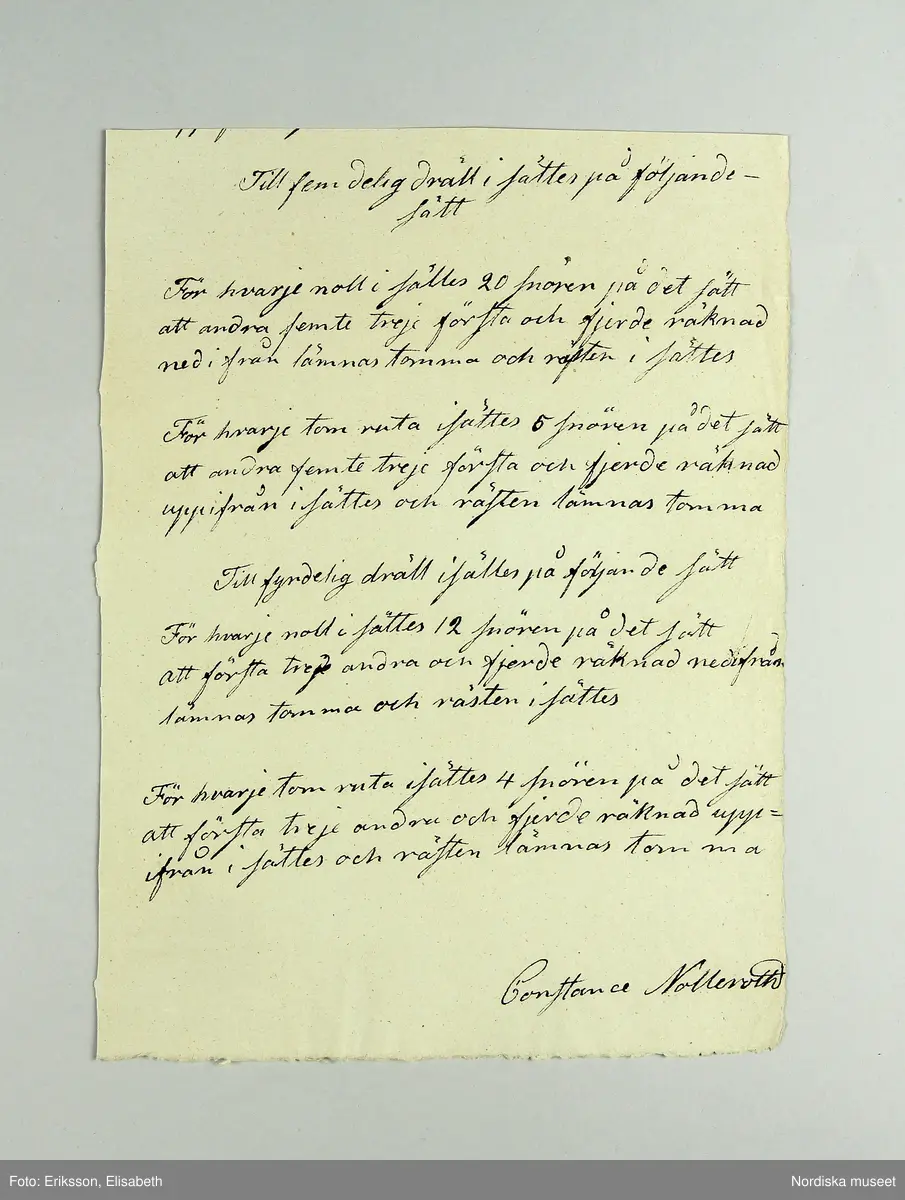 Till fem delig dräll i sättes på följande-
sätt
För hvarje noll i sättes 20 snören på det sätt
att andra femte treje första och fjerde räknad
nedifrån lämnas tomma och rästen i sättes
För hvarje tom ruta isättes 5 snören på det sätt
att andra femte treje första och fjerde räknad
uppifrån i sättes och rästen lämnas tomma
Till fyrdelig dräll isättes på följande sätt
För hvarje noll i sättes 12 snören på det sätt
att första treje andra och fjerde räknad nedifrån
lämnas tomma och rästen i sättes
För hvarje tom ruta isättes 4 snören på det sätt
att första treje andra och fjerde räknad upp=
ifrån i sättes och rästen lämnas tomma
Constance Nolleroth
Foto: Eriksson, Elisabeth
Nordiska museet